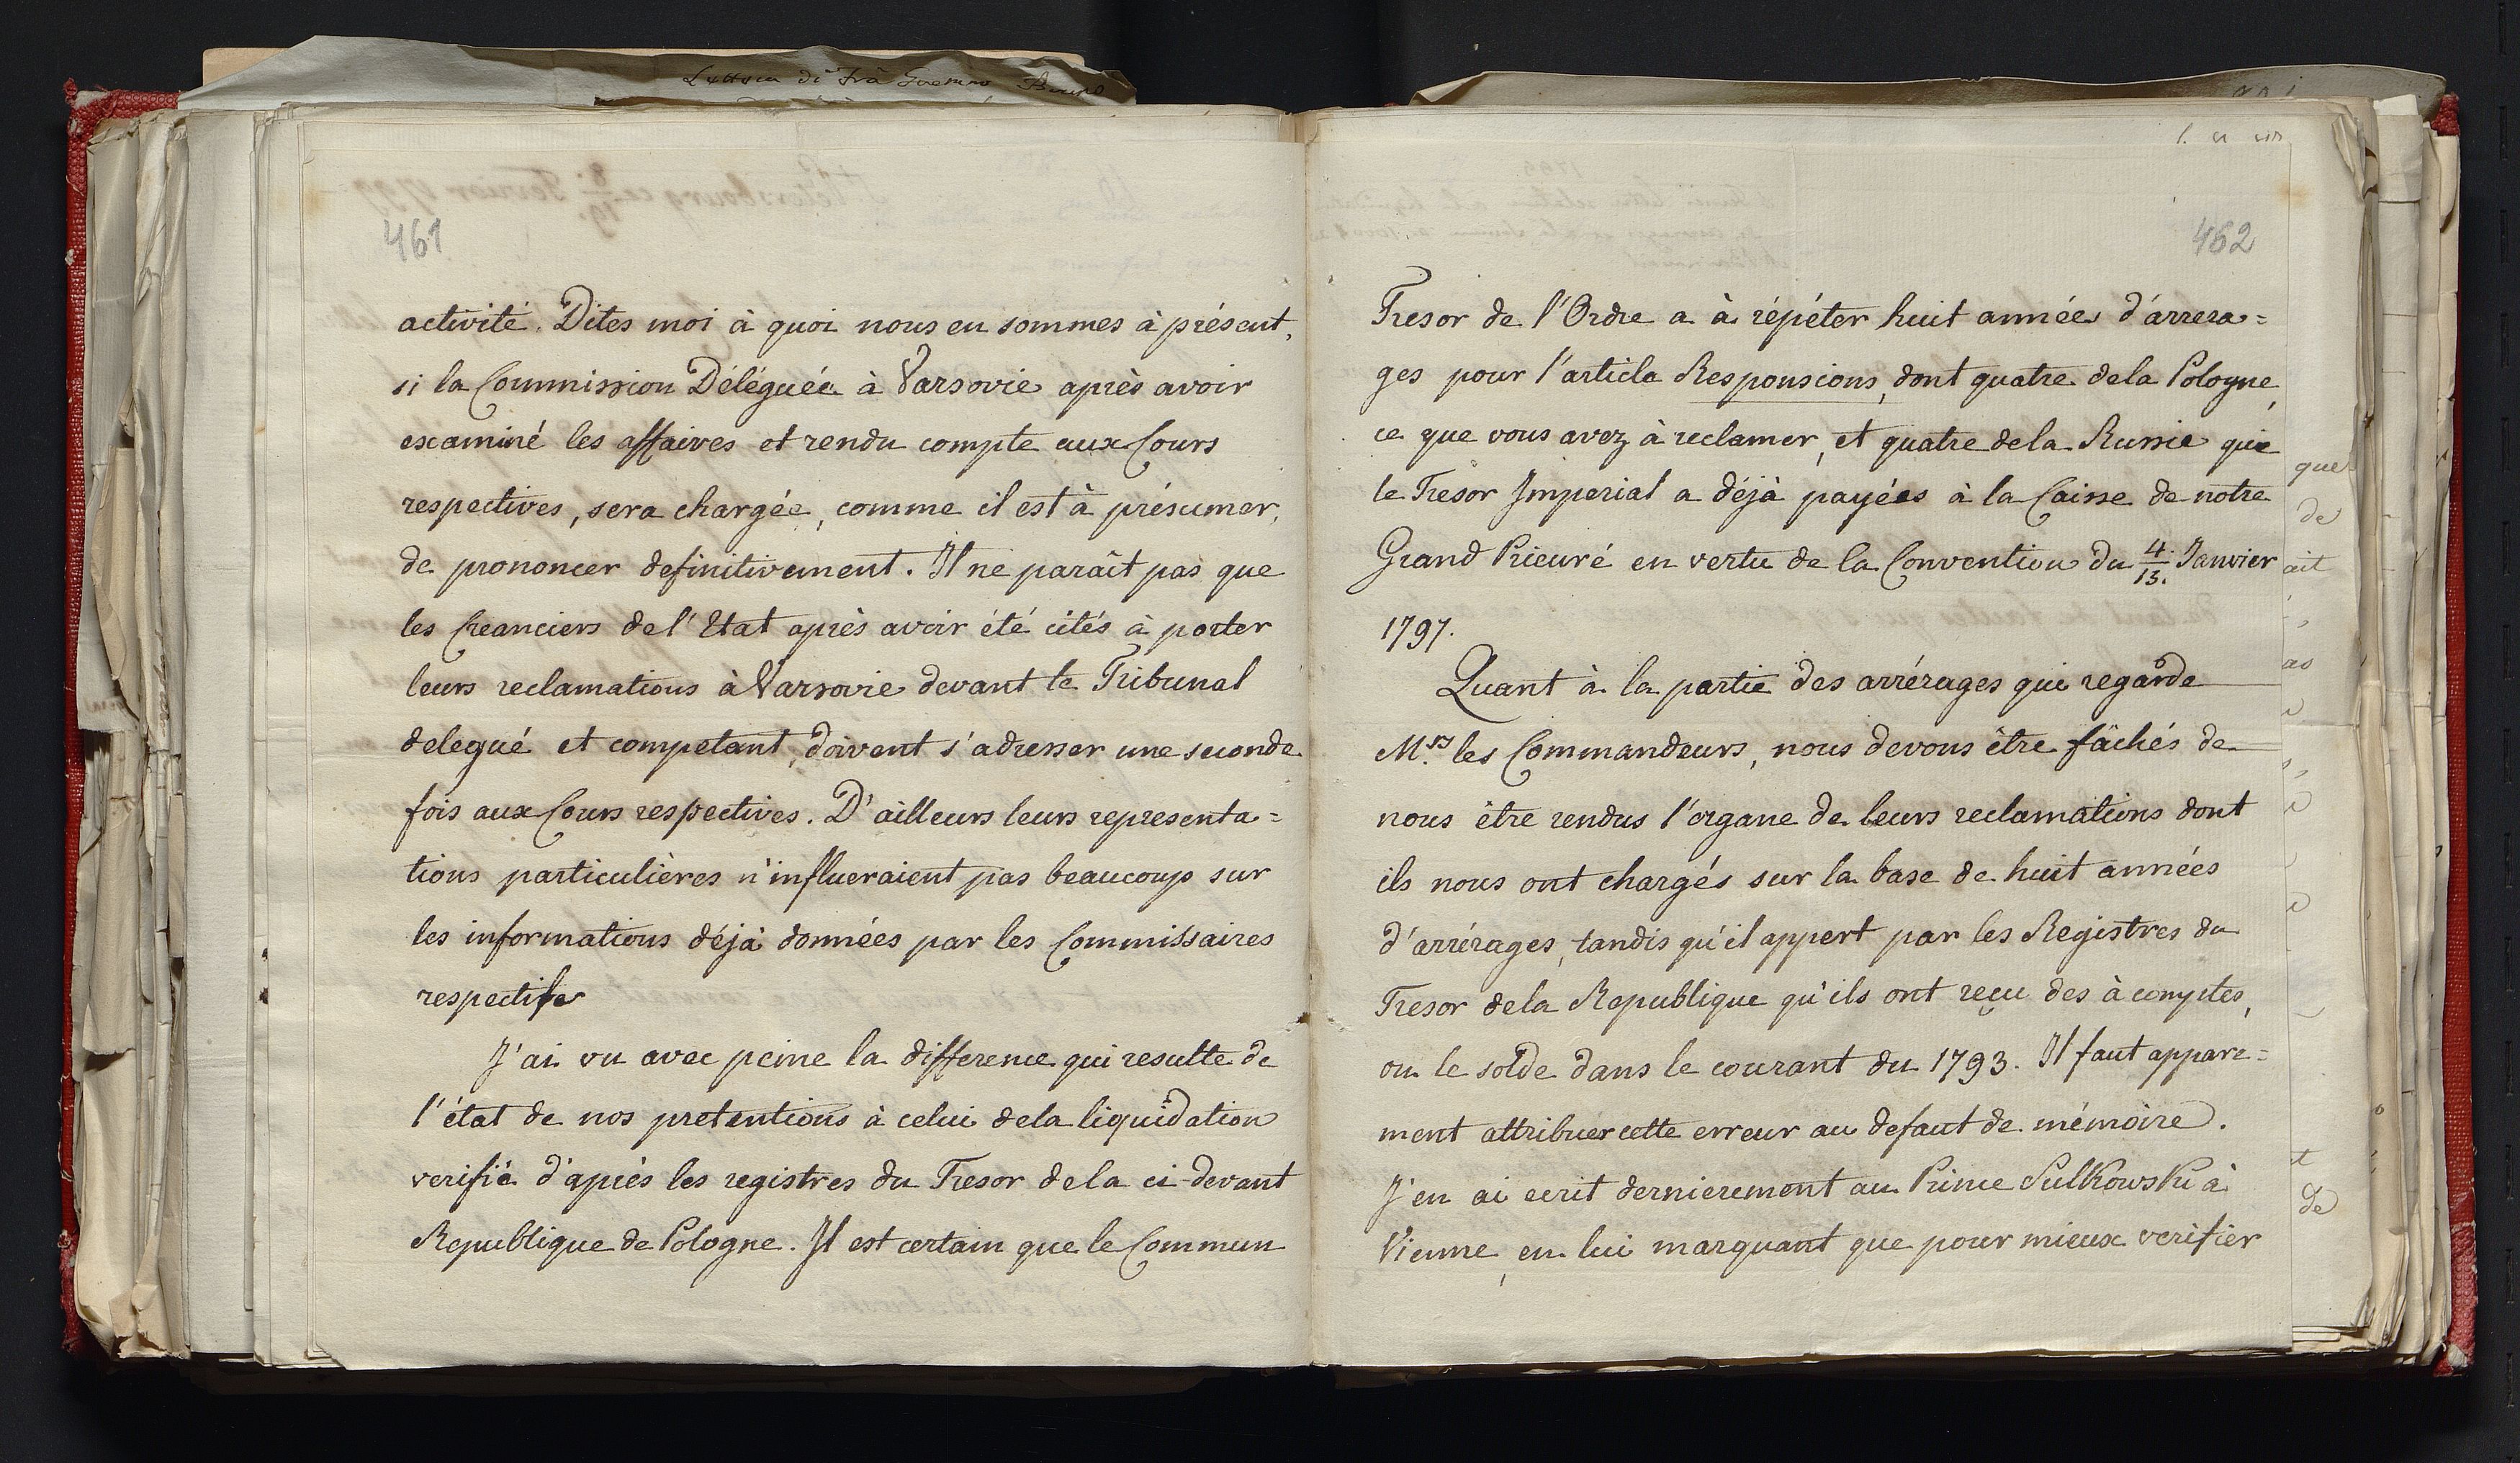 461
activité. Dites moi à quoi nous en sommes à présent,
si la Commission Déléguée à Varsovie après avoir
examiné les affaires et rendu compte aux Cours
respectives, sera chargée, comme il est à présumer,
de prononcer definitivement. Il ne paraît pas que
les Creanciers de l'Etat après avoir été cités à porter
leurs reclamations à Varsovie devant le Tribunal
delegué et competant, doivent s'adresser une seconde
fois aux Cours respectives. D'ailleurs leurs representa=
tions particulières n'influeraient pas beaucoup sur
les informations déjà données par les Commissaires
respectifs
J'ai vu avec peine la difference qui resulte de
l'état de nos pretentions à celui dela liquidation
verifié d'après les registres du Tresor dela ci-devant
Republique de Pologne. Il est certain que le Commun
462
Tresor de l'Ordre a à répéter huit années d'árrera=
ges pour l'article Responsions, dont quatre dela Pologne,
ce que vous avez à reclamer, et quatre dela Russie que
le Tresor Imperial a déjà payées à la Caisse de notre
Grand Prieuré en vertu de la Convention du 4./15. Janvier
1797.
Quant à la partie des arrérages qui regarde
M.rs les Commandeurs, nous devons être fâchés de
nous être rendus l'organe de leurs reclamations dont
ils nous ont chargés sur la base de huit années
d'arrérages, tandis qu'il appert par les Registres du
Tresor dela Republique qu'ils ont reçu des à comptes,
ou le solde dans le courant du 1793. Il faut appare=
ment attribuer cette erreur au defaut de mémoire.
J'en ai ecrit dernierement au Prince Sulkowski à
Vienne, en lui marquant que pour mieux verifier
que
de
ait
as
t
de